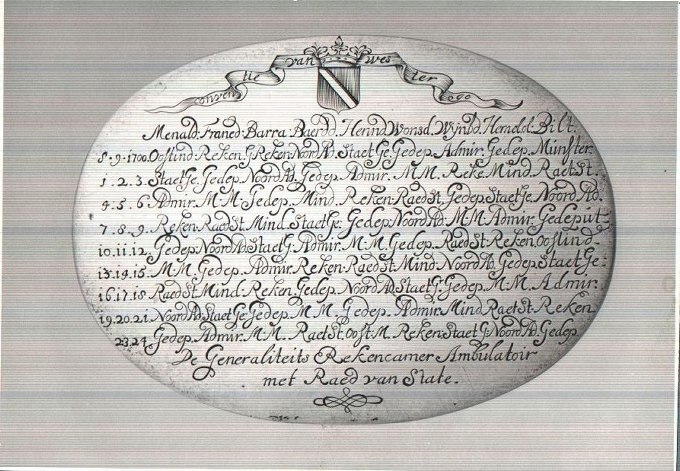 Conventie van Westergo
Menald. Franed. Barra. Baerdd. Hennd. Wonsd. Wijnbd. Hemeld. Bilt.
8.9.1700. Oostind. Reken. G. Reken. Noord. Ad. Staet Ge. Gedep. Admir. Gedep. Munster.
1.2.3. Staet Ge. Gedep. Noord. Ad. Gedep. Admir. M.M. Reke. Mind. Raet St.
4.5.6. Admir. M.M. Gedep. Mind. Reken. Raed St. Gedep. Staet Ge. Noord. Ad.
7.8.9. Reken. Raed St. Mind. Staet Ge. Gedep. Noord. Ad. M.M. Admir. Gedeput.
10.11.12. Gedep. Noord. Ad. Staet G. Admir. M.M. Gedep. Raed St. Reken. Oostind.
13.14.15. M.M. Gedep. Admir. Reken. Raed St. Mind. Noord. Ad. Gedep. Staet Ge.
16.17.18. Raed St. Mind. Reken. Gedep. Noord. Ad. Staet G. Gedep. M.M. Admir.
19.20.21. Noord. Ad. Staet Ge. Gedep. M.M. Gedep. Admir. Mind. Raet St. Reken.
23.24. Gedep. Admir. M.M. Raet St. Oost. M. Reken. Staet G. Noord. Ad. Gedep.
De Generaliteits Rekencamer Ambulatoir
met Raed van State.